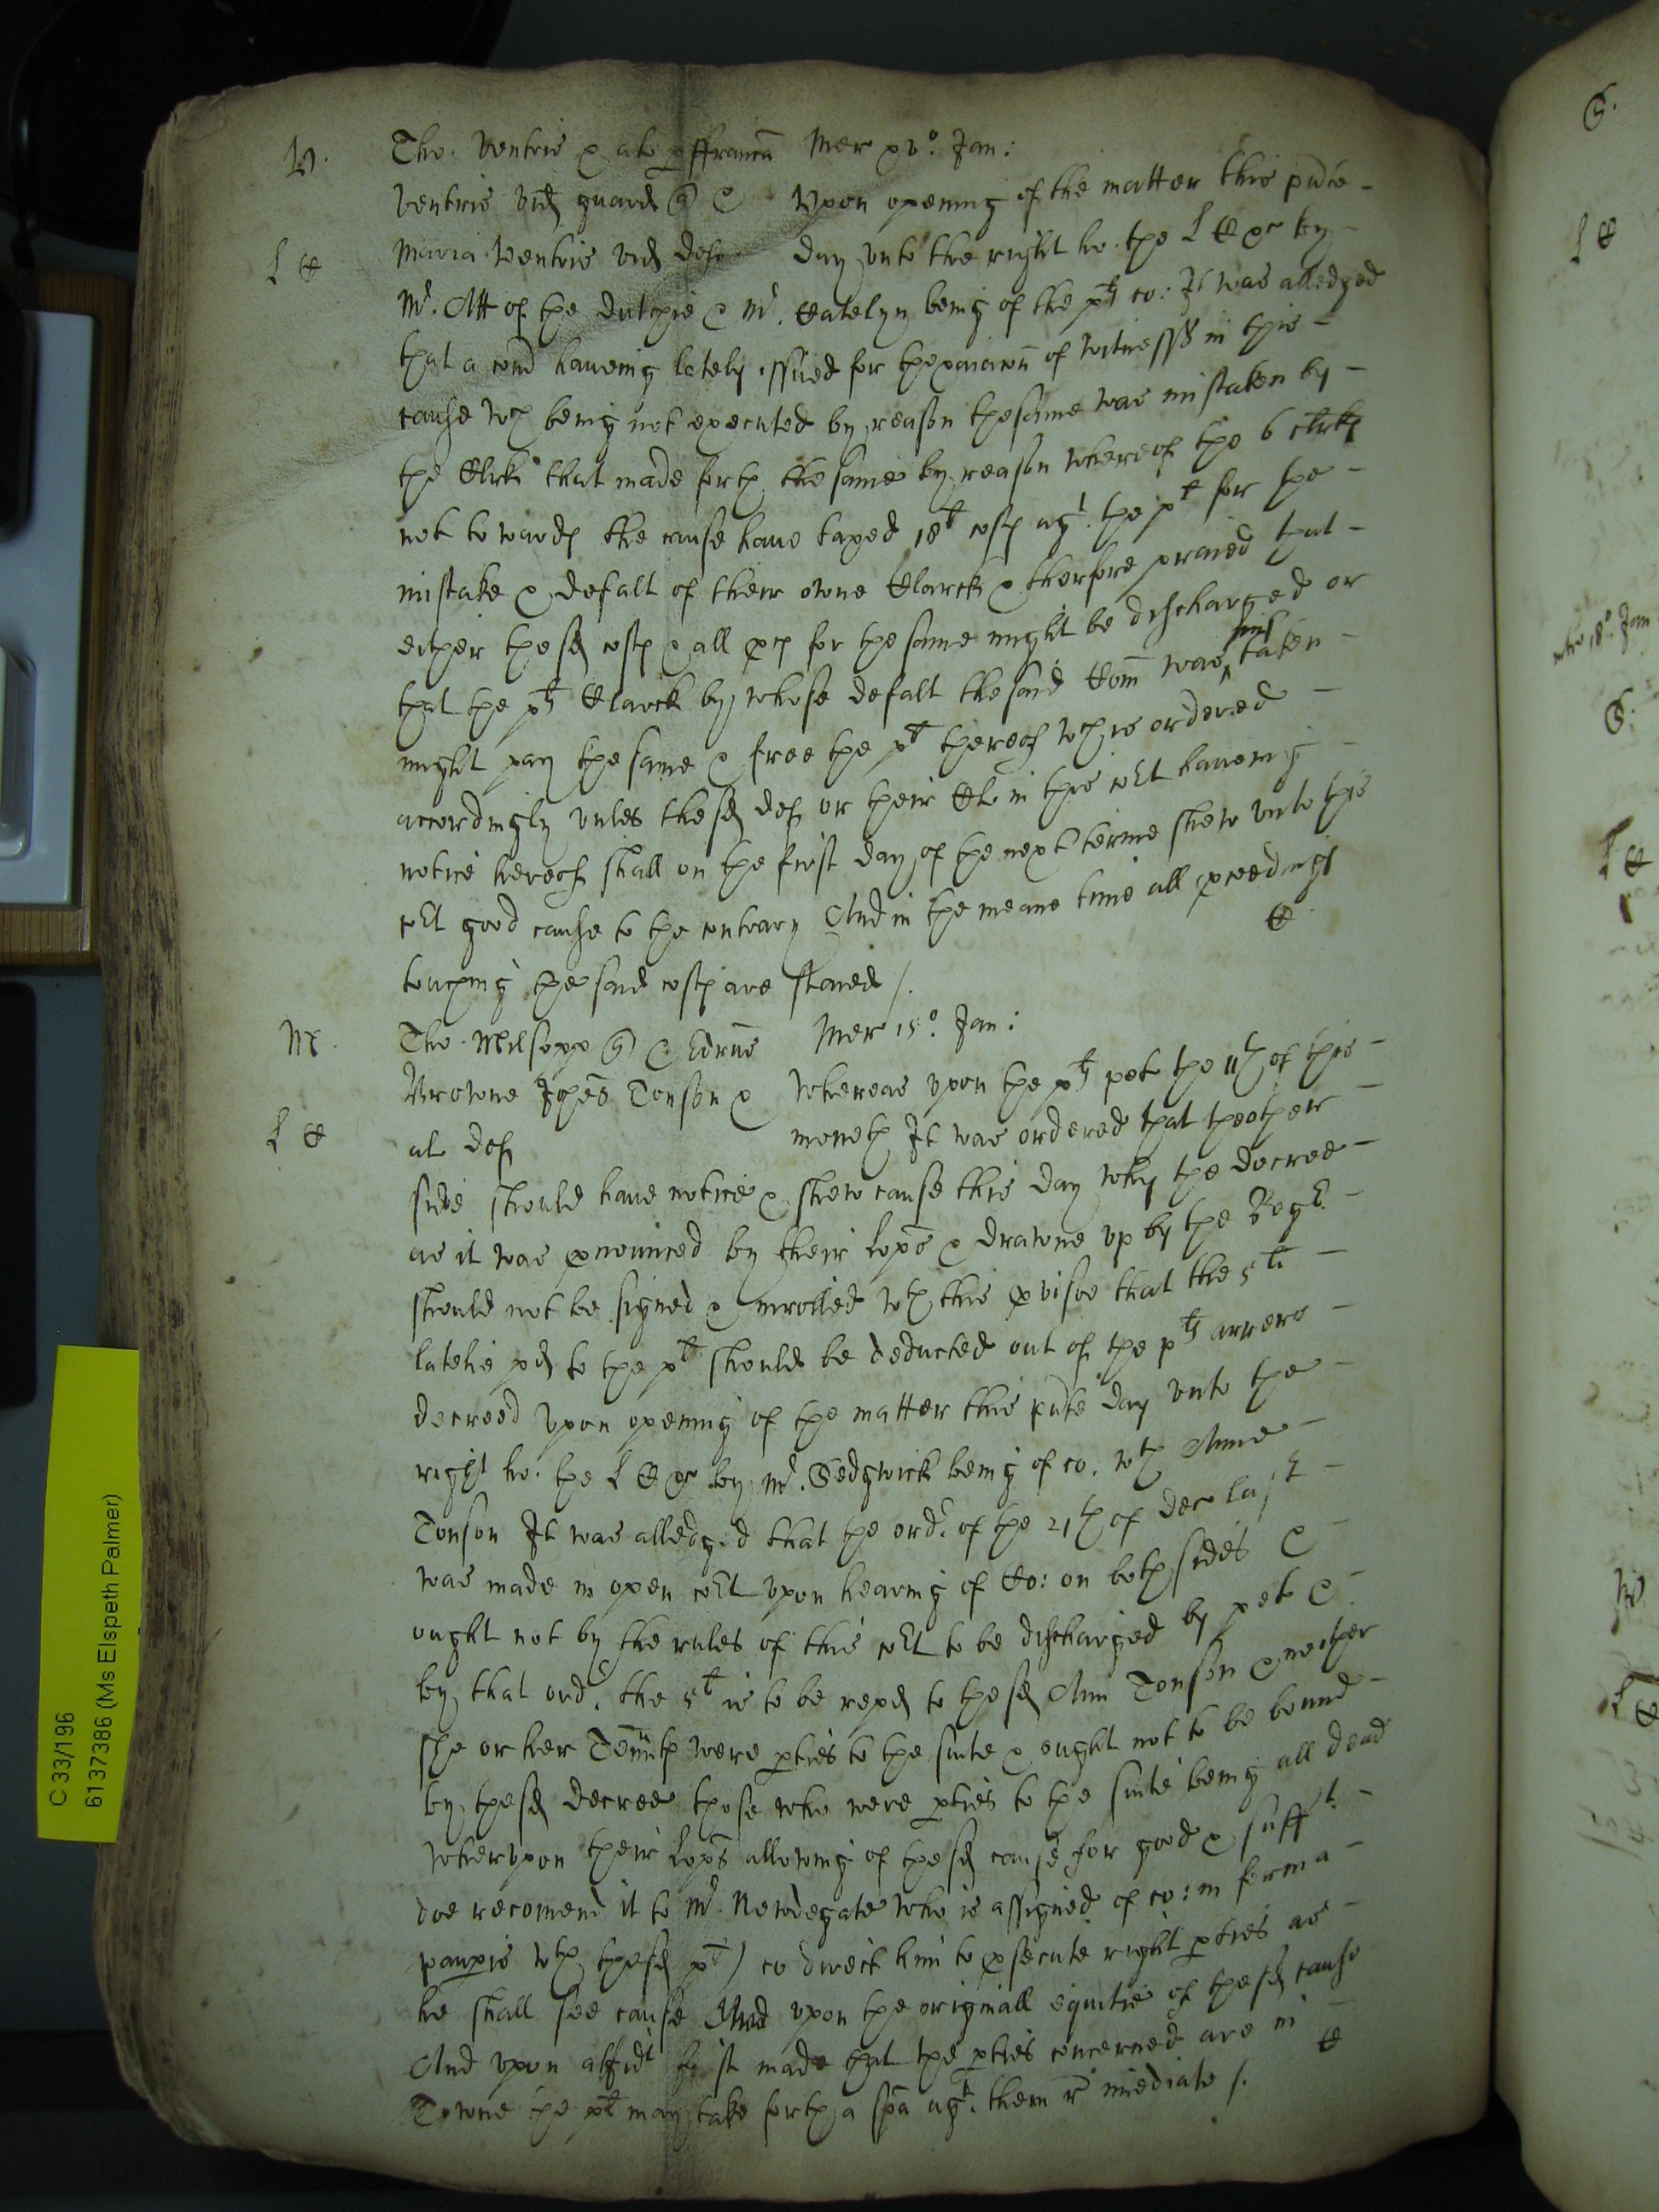 V. Tho. Ventris & al p Franca Mer xvo. Jan:
Ventris vid guard q & Upon opening of the matter this pnte
L C Maria Ventris vid def day unto the right ho. the L C &c by
Mr. Att of the dutchie & Mr. Catelyn being of the plts co: It was alledged
that a com haveing lately issued for thexaiacon of witnesses in this
cause wch being not executed by reason the same was mistaken by
the Clrk that made forth the same by reason whereof the 6 clrks
not towards the cause have taxed 18l costs agt. the plt for the
mistake & default of their owne Clarck & therfore praied that
either the sd costs & all pces for the same might be discharged or
that the plts Clarck by whose defalt the said Com was mis taken
might pay the same & free the plt thereof wch is ordered
accordingly unles the sd def or their Cl in this cort haveing
notice hereof shall on the first day of the next terme shew unto this
cort good cause to the contrary And in the meane time all proceedings
touching the said costs are staied /. C
M. Tho. Milsopp q & Edrus Mer 15o. Jan:
Browne Johes Tonson & Whereas upon the plts pet the 11th of this
L C al def moneth It was ordered that thother
side should have notice & shew cause this day why the decree
as it was pnounced by their Lopps & drawne up by the Regr.
should not be signed & inrolled wth this pviso that the 5li
latelie pd to the plt should be deducted out of the plts arrere
decreed Upon opening of the matter this pnte day unto the
right ho. the L C &c by Mr. Sedgwick being of co. wth Anne
Tonson It was alledged that the ordr. of the 21th of Dec last
was made in open cort upon hearing of Co: on both sides &
ought not by the rules of this cort to be discharged by pet &
by that ordr. the 5l is to be repd to the sd Ann Tonson & neither
she or her Tennts were pties to the suite & ought not to be bound
by the sd decree those who were pties to the suite being all dead
Wherupon their Lopps allowing of the sd cause for good & sufft.
doe recomend it to Mr. Newdegate who is assigned of co: in forma
paupis wth the sd plt) to direct him to psecute right pties as
he shall see cause And upon the originall equitie of the sd cause
And upon affidt first made that the pties concerned are in
Towne the plt may take forth a spa agt. them r imediate /. C
S.
L C
S:
L C
C 33/196
6137386 (Ms Elspeth Palmer)